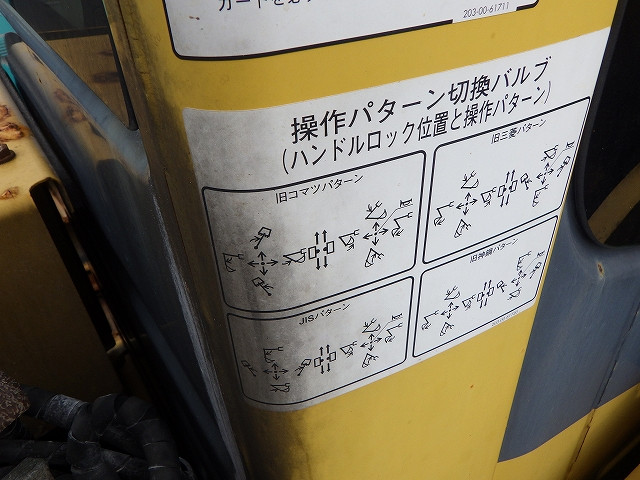 203-00-61711
操作パターン切換バルブ
(ハンドルロック位置と操作パターン)
旧コマツパターン
旧三菱パターン
JISパターン
旧神鋼パターン